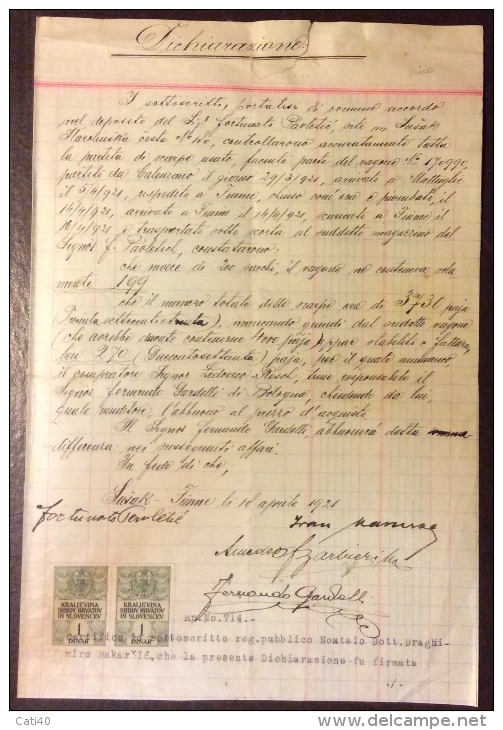 Dichiarazione
I sottoscritti, portatisi di comune accordo
nel deposito del Sig. Fortunato Pavletić, sito in Sušak
cesta No 16, controllarono accuratamente tutta
la partita di scarpe usate, facente parte del vagone No 170990,
partito da Catanzaro il giorno 29/3/921, arrivato a Mattuglie
il 5/4/921, rispedito a Fiume, chiuso com'era e piombato, il
14/4/921, arrivato a Fiume il 14/4/921, scaricato a Fiume il
16/4/921 e trasportato sotto scorta al suddetto magazzino del
Signor F. Pavletich, constatarono:
che invece di 200 sacchi, il vagone ne conteneva sola
mente 199
che il numero totale delle scarpe era di 3730 paja
mancando quindi dal sudetto vagone
(che avrebbe dovuto contenerne 4000 paja,
270 (Duecentosettanta) paja, per il quale
il compratore Signor Lodovico tiene responsabile il
Signor Fernando Gardelli di Bologna, chiedendo da lui,
quale venditore, l'abbuono al prezzo d'acquisto
Il Signor Fernando Gardelli abbuonerà detta
differenza nei susseguenti affari.
In fede di che,
Sušak - Fiume li 18 aprile 1921
Fortunato Pavletić Ivan
Amedeo
Fernando Gardelli
KRALJEVINA
SRBOV HRVATOV
IN SLOVENCEV
1
DINAR
KRALJEVINA
SRBOV HRVATOV
IN SLOVENCEV
1
DINAR
No.714.-
sottoscritto reg.pubblico Notaio Dott.Draghi-
miro Bakaršić, che la presente Dichiarazione fu firmata
./.
Cati40
www.delcampe.net